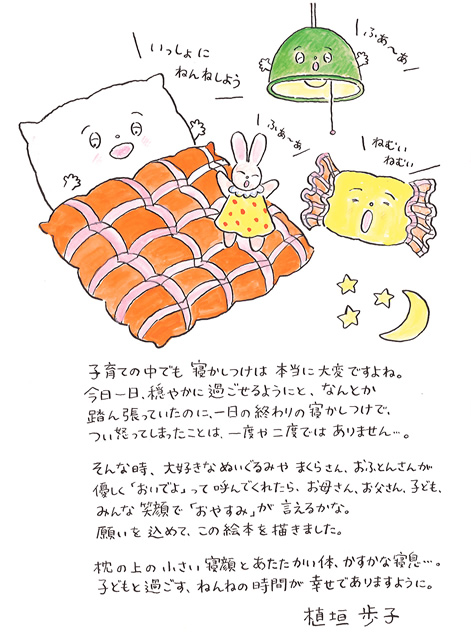 いっしょに
ねんねしよう
ふぁ～あ
ふぁ～あ
ねむい
ねむい
子育ての中でも 寝かしつけは 本当に大変ですよね。
今日一日、穏やかに過ごせるようにと、なんとか
踏ん張っていたのに、一日の終わりの寝かしつけで、
つい怒ってしまったことは、一度や二度では ありません…。
そんな時、大好きなぬいぐるみや まくらさん、おふとんさんが
優しく「おいでよ」って呼んでくれたら、お母さん、お父さん、子ども、
みんな笑顔で「おやすみ」が 言えるかな。
願いを込めて、この絵本を描きました。
枕の上の小さい寝顔とあたたかい体、かすかな寝息…。
子どもと過ごす、ねんねの時間が 幸せでありますように。
植垣 歩子